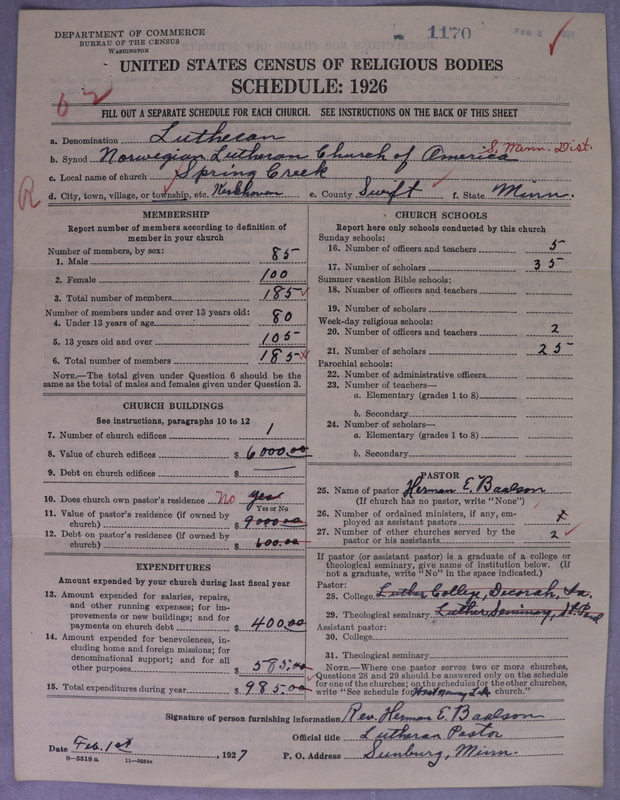 DEPARTMENT OF COMMERCE
BUREAU OF THE CENSUS
WASHINGTON
1170
FEB 5
UNITED STATES CENSUS OF RELIGIOUS BODIES
SCHEDULE: 1926
FILL OUT A SEPARATE SCHEDULE FOR EACH CHURCH. SEE INSTRUCTIONS ON THE BACK OF THIS SHEET
a. Denomination Lutheran
b. Synod Norwegian Lutheran Church of America S. Minn. Dist.
c. Local name of church Spring Creek
R
d. City, town, village, or township, etc. Kerkhoven e. County Swift f. State Minn.
MEMBERSHIP
Report number of members according to definition of
member in your church
Number of members, by sex:
1. Male 85
2. Female 100
3. Total number of members 185
Number of members under and over 13 years old:
4. Under 13 years of age 80
5. 13 years old and over 105
6. Total number of members 185
NOTE.—The total given under Question 6 should be
same as the total of males and females given under Question 3.
CHURCH BUILDINGS
See instructions, paragraphs 10 to 12
7. Number of church edifices 1
8. Value of church edifices $ 6000.00
9. Debt on church edifices $
10. Does church own pastor's residence? No yes
Yes or No
11. Value of pastor's residence (if owned by
church) $ 9000.00
12. Debt on pastor's residence (if owned by
church) $ 600.00
EXPENDITURES
Amount expended by your church during last fiscal year
13. Amount expended for salaries, repairs,
and other running expenses; for im-
provements or new buildings; and for
payments on church debt $ 400.00
14. Amount expended for benevolences, in-
cluding home and foreign missions; for
denominational support; and for all
other purposes $ 585.00
15. Total expenditures during year $ 985.00
CHURCH SCHOOLS
Report here only schools conducted by this church
Sunday schools:
16. Number of officers and teachers 5
17. Number of scholars 35
Summer vacation Bible schools:
18. Number of officers and teachers
19. Number of scholars
Week-day religious schools:
20. Number of officers and teachers 2
21. Number of scholars 25
Parochial schools:
22. Number of administrative officers
23. Number of teachers—
a. Elementary (grades 1 to 8)
b. Secondary
24. Number of scholars—
a. Elementary (grades 1 to 8)
b. Secondary
PASTOR
25. Name of pastor Herman E. Baalson
(If church has no pastor, write "None")
26. Number of ordained ministers, if any, em-
ployed as assistant pastors
27. Number of other churches served by the
pastor or his assistants 2
If pastor (or assistant pastor) is a graduate of a college or
theological seminary, give name of institution below. (If
not a graduate, write "No" in the space indicated.)
Pastor:
28. College Luther College, Decorah, Ia.
29. Theological seminary Luther Seminary, St. Paul
Assistant pastor:
30. College
31. Theological seminary
NOTE.—Where one pastor serves two or more churches,
Questions 28 and 29 should be answered only on the schedule
for one of the churches; on the schedules for the other churches,
write "See schedule for church."
Signature of person furnishing information Rev. Herman E. Baalson
Official title Lutheran Pastor
Date Feb. 1st, 1927 P. O. Address Sunburg, Minn.
8-5518 a